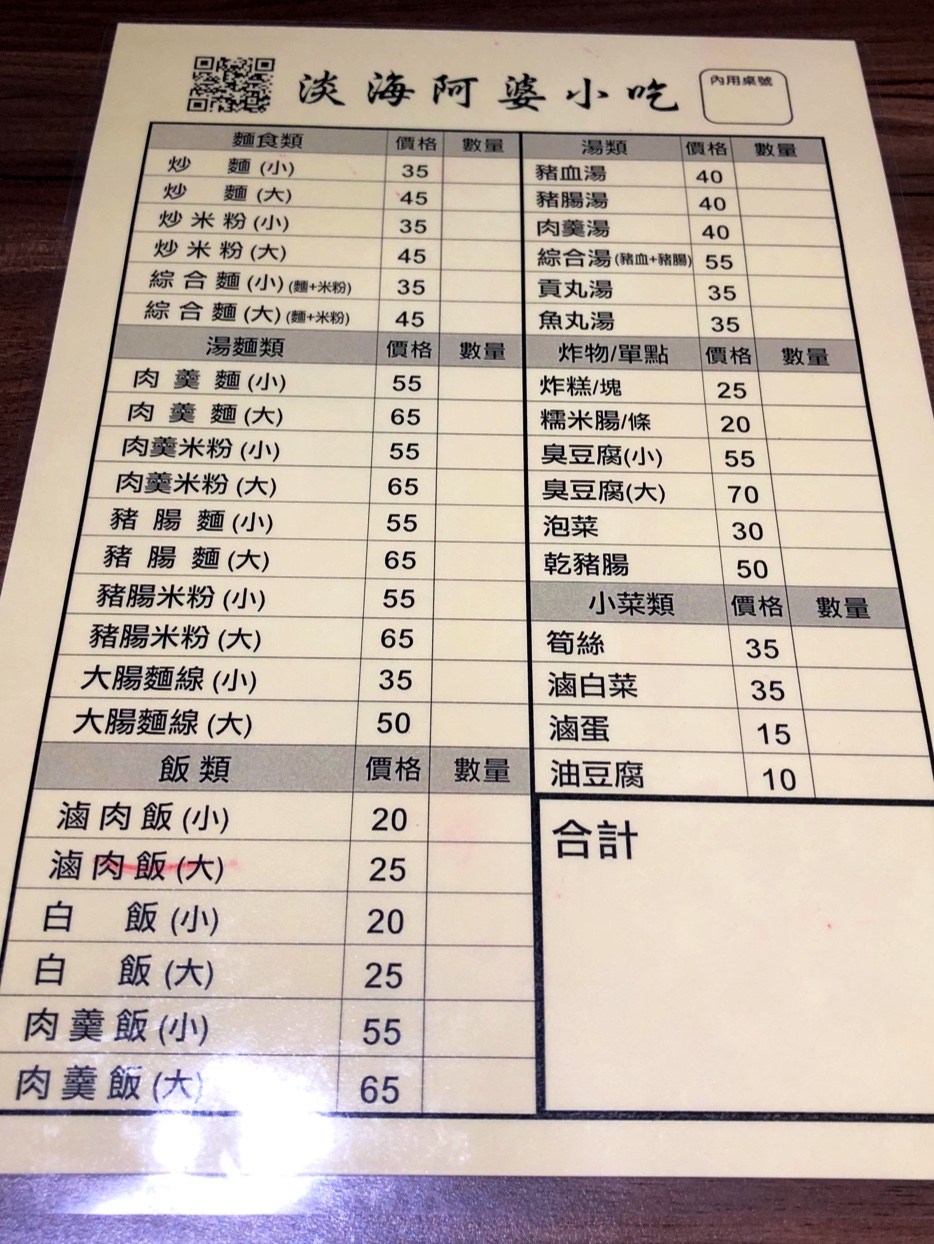 淡海阿婆小吃
內用桌號
麵食類 價格 數量
炒 麵 (小) 35
炒 麵 (大) 45
炒米粉 (小) 35
炒米粉 (大) 45
綜合麵 (小) (麵+米粉) 35
綜合麵 (大) (麵+米粉) 45
湯麵類 價格 數量
肉羹麵 (小) 55
肉羹麵 (大) 65
肉羹米粉 (小) 55
肉羹米粉 (大) 65
豬腸麵 (小) 55
豬腸麵 (大) 65
豬腸米粉 (小) 55
豬腸米粉 (大) 65
大腸麵線 (小) 35
大腸麵線 (大) 50
飯類 價格 數量
滷肉飯 (小) 20
滷肉飯 (大) 25
白 飯 (小) 20
白 飯 (大) 25
肉羹飯 (小) 55
肉羹飯 (大) 65
湯類 價格 數量
豬血湯 40
豬腸湯 40
肉羹湯 40
綜合湯 (豬血+豬腸) 55
貢丸湯 35
魚丸湯 35
炸物/單點 價格 數量
炸糕/塊 25
糯米腸/條 20
臭豆腐(小) 55
臭豆腐(大) 70
泡菜 30
乾豬腸 50
小菜類 價格 數量
筍絲 35
滷白菜 35
滷蛋 15
油豆腐 10
合計